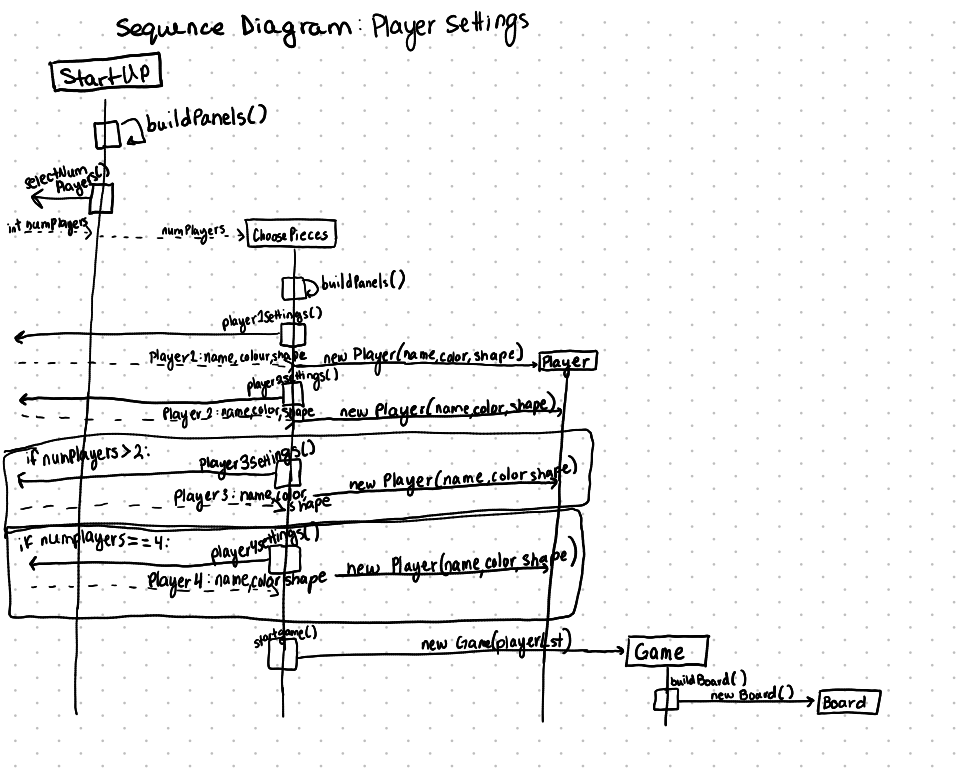 Sequence Diagram: Player Settings
StartUp
buildPanels()
selectNum
Players()
int numPlayers
numPlayers
ChoosePieces
buildPanels()
player1Settings()
Player1: name, colour, shape
new Player(name, color, shape)
Player
player2settings()
Player 2: name, color, shape
new Player(name, color, shape)
if numPlayers > 2:
player3Settings()
Player3: name, color,
shape
new Player(name, color shape)
if numPlayers == 4:
player4settings()
Player 4: name, color, shape
new Player(name, color, shape)
startgame()
new Game(playerList)
Game
buildBoard()
new Board()
Board